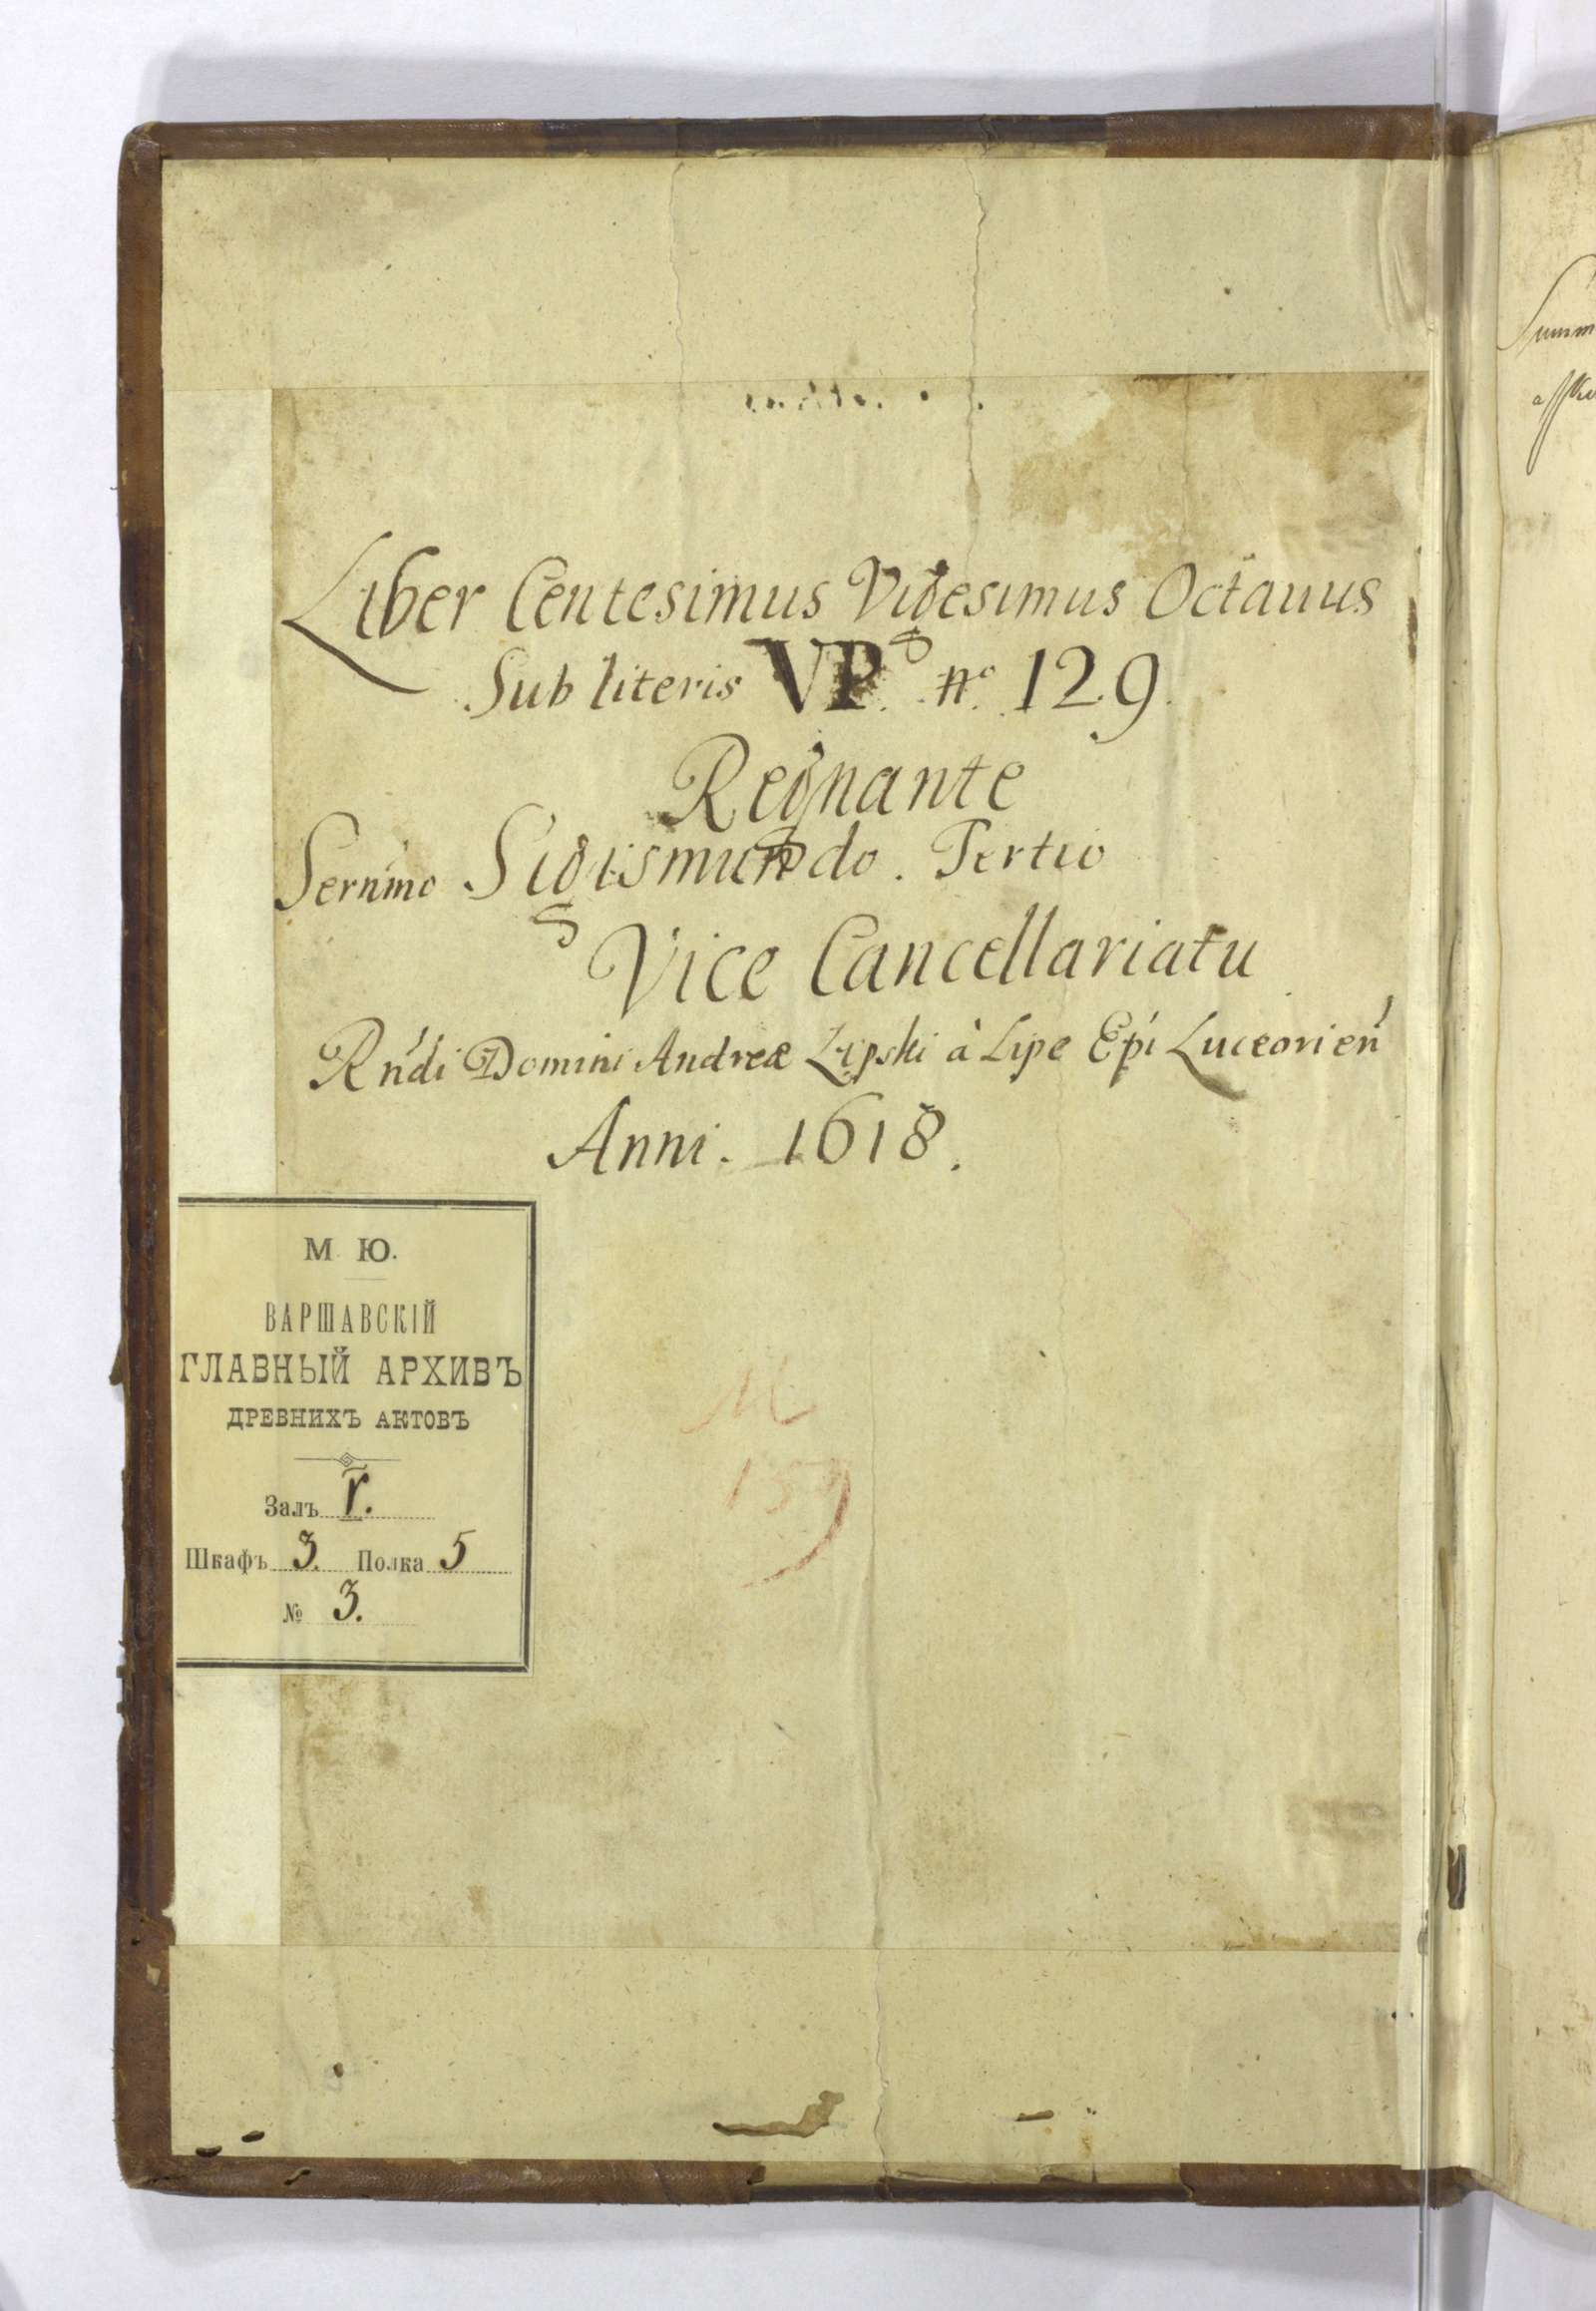 Liber Centesimus Vigesimus Octauus
Sub literis VP. n.º 129.
Regnante
Sernmo Sigismundo. Tertio
Vice Cancellariatu
Rńdi Domini Andreæ Lipski à Lipe Epí Luceorień
Anni. 1618.
М Ю.
ВАРШАВСКІЙ
ГЛАВНЫЙ АРХИВЪ
ДРЕВНИХЪ АКТОВЪ
Залъ V.
Шкафъ 3. Полка 5
№ 3.
M
159
Summ